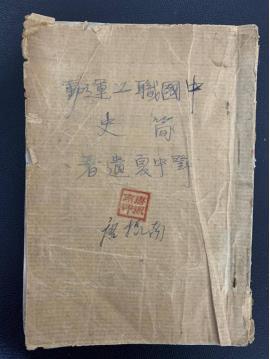 中國職工運動
簡史
鄧中夏遺著